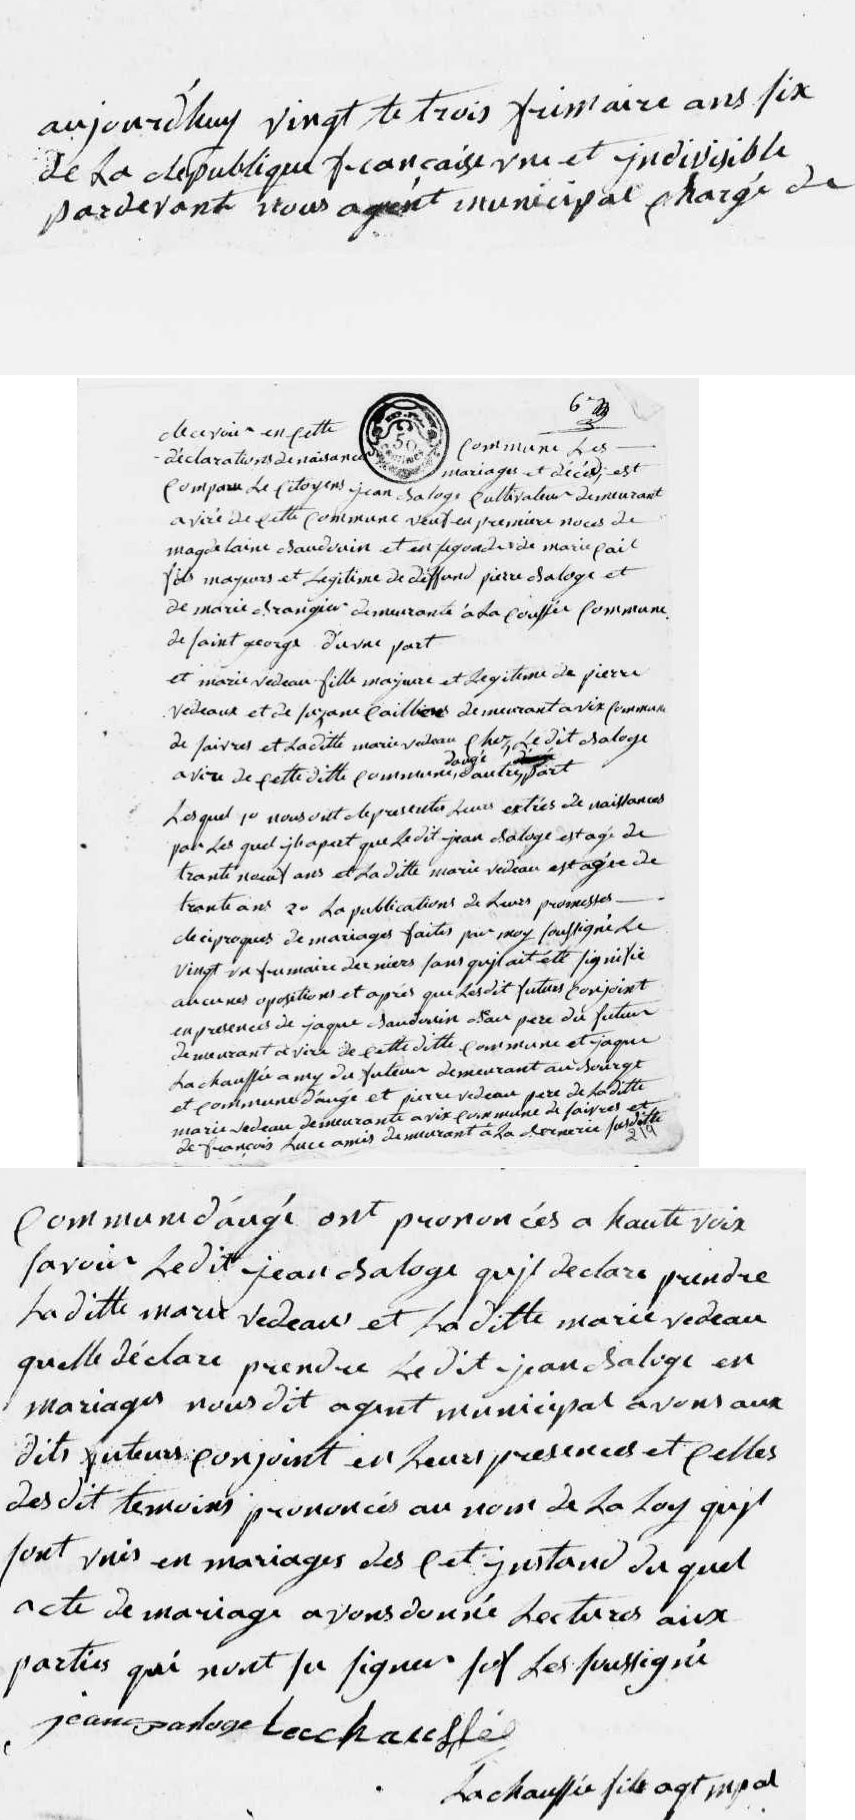 aujourd'huy vingt te trois frimaire ans six
de La republique francaise vne et jndivisible
pardevant nous agent municipal chargé de
6
recevoir en cette commune Les
declarations de naisance mariages et décéd, est
comparu Le citoyens jean baloge cultivateur demeurant
a viré de cette commune veuf en premiere noces de
magdelaine baudouin et en segondes de marie cail
fils majeurs et Legitime de deffund pierre baloge et
de marie brangier demeurante à La coussée commune
de saint george d'une part
et marie vedeau fille majeure et Legiteme de pierre
vedeaux et de suzane caillon demeurant a vix commune
de saivres et La ditte marie vedeau chez Le dit baloge
a vire de cette ditte commune daugé d'autre part
Lesquel 1o nous ont representés Leurs extrés de naissances
par Les quel jl apert que Le dit jean baloge est agé de
trante neuf ans et La ditte marie vedeau est agée de
trante ans 2o La publications de Leurs promesses
reciproques de mariages faites par moy soussigné Le
vingt vn frimaire derniers sans qujl ait eté signifié
aucunes opositions et aprés que Lesdit futurs conjoint
en presences de jaque baudouin beau pere du futeur
demeurant a vire de cette ditte commune et jaque
Lachaussée amy du futeur demeurant au bourgt
et commune d'augé et pierre vedeau pere de La ditte
marie vedeau demeurante a vix commune de saivres et
de françois Luce amis demeurant à La bernerie susditte
219
commune d'augé ont prononcés a haute voix
savoir Ledit jean baloge qujl declare prendre
La ditte marie vedeaus et La ditte marie vedeau
quelle déclare prendre Le dit jean baloge en
mariages nous dit agent municipal avons aux
dits futeurs conjoint en Leurs presences et celles
des dit temoins prononcés au nom de La Loy qujl
sont vnis en mariages des cet jnstand du quel
acte de mariage avons donné Lectures aux
parties qui nont su signer sof Les soussigné
jean baloge Lachaussée
Lachaussée fils agt mpal